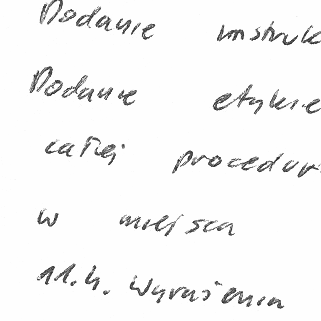 Dodanie instruk
Dodanie etykie
całej procedur
w miejscu
11.4. Wyrażenia